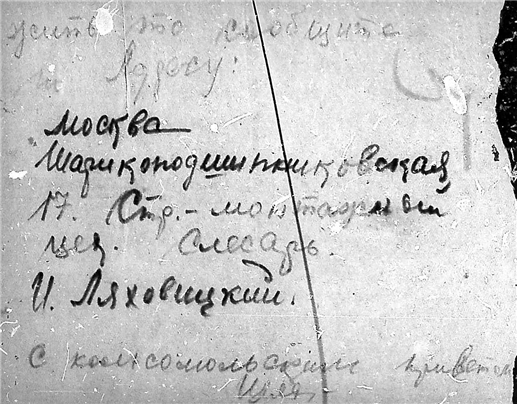 жить это сообщите
Адресу:
Москва
Шарикоподшипниковская
17. Стр.-монтажный
цех. Слесарь.
И. Ляховицкий.
С комсомольским приветом